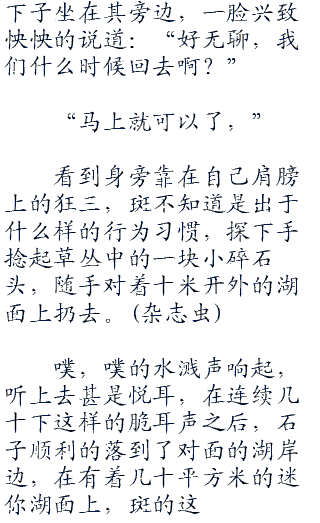 下子坐在其旁边，一脸兴致
怏怏的说道：“好无聊，我
们什么时候回去啊？”
“马上就可以了，”
看到身旁靠在自己肩膀
上的狂三，斑不知道是出于
什么样的行为习惯，探下手
捻起草丛中的一块小碎石
头，随手对着十米开外的湖
面上扔去。(杂志虫)
噗，噗的水溅声响起，
听上去甚是悦耳，在连续几
十下这样的脆耳声之后，石
子顺利的落到了对面的湖岸
边，在有着几十平方米的迷
你湖面上，斑的这